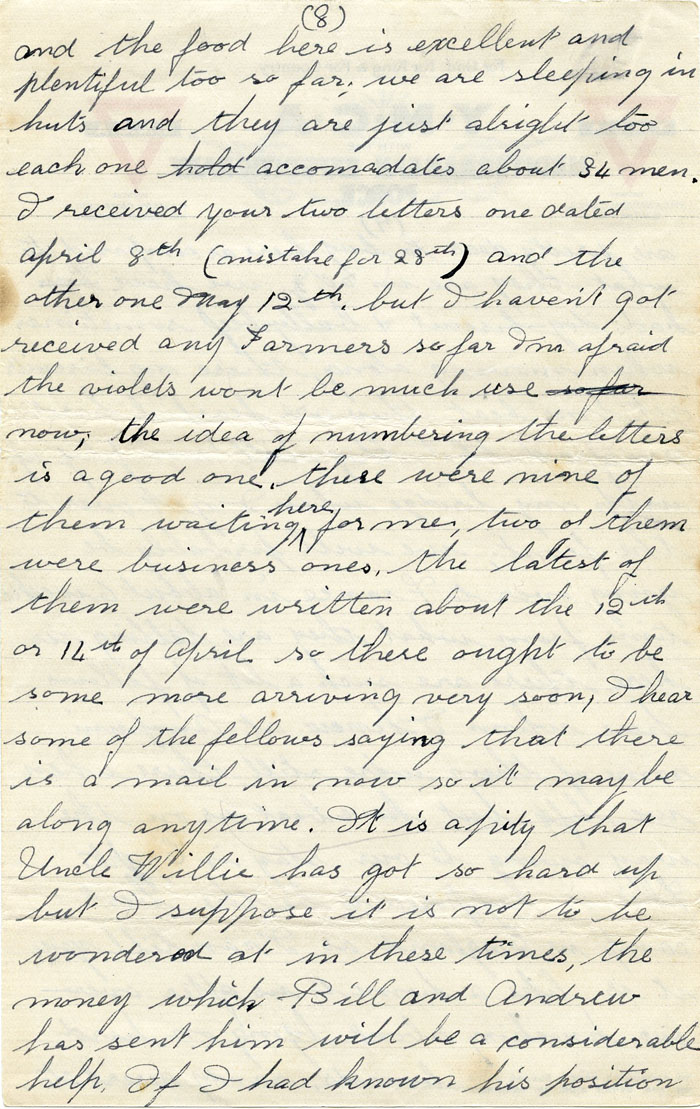 (8)
and the food here is excellent and
plentiful too so far, we are sleeping in
huts and they are just alright too
each one hold accomadates about 34 men.
I received your two letters one dated
april 8th (mistake for 28th) and the
other one May 12th, but I haven't got
received any Farmers so far I'm afraid
the violets wont be much use so far
now, the idea of numbering the letters
is a good one, there were nine of
them waiting here for me, two of them
were business ones, the latest of
them were written about the 12th
or 14th of April so there ought to be
some more arriving very soon, I hear
some of the fellows saying that there
is a mail in now so it may be
along anytime. It is a pity that
Uncle Willie has got so hard up
but I suppose it is not to be
wondered at in these times, the
money which Bill and Andrew
has sent him will be a considerable
help. If I had known his position